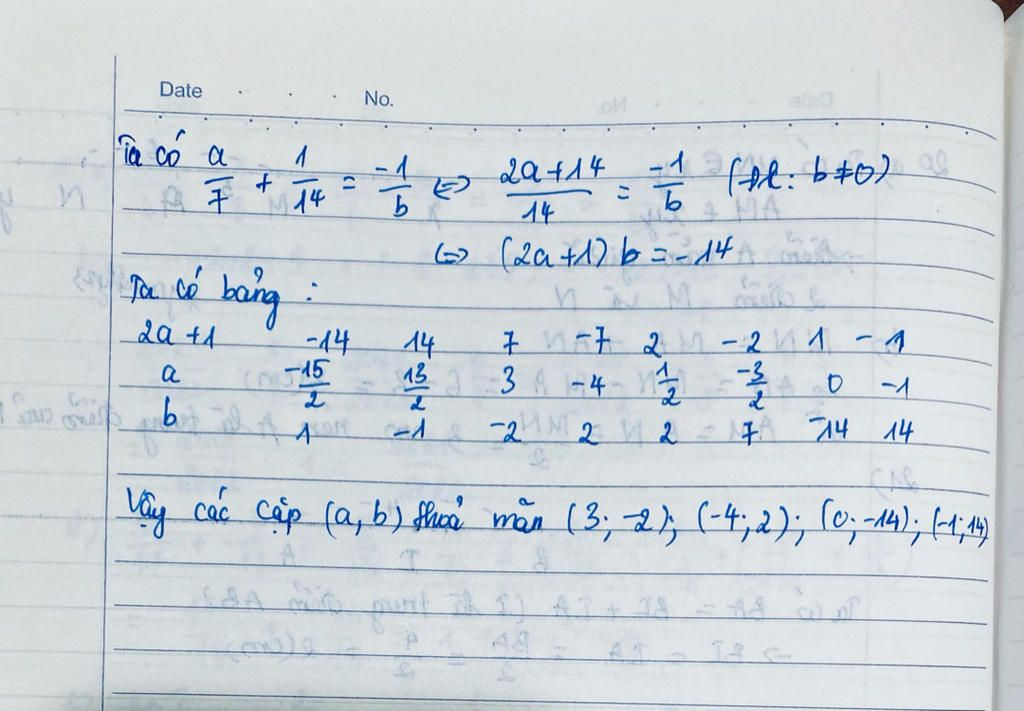 Date . . . No.
Ta có a/7 + 1/14 = -1/b ⇔ 2a+14/14 = -1/b (đk: b≠0)
⇔ (2a+1) b = -14
Ta có bảng:
2a+1 -14 14 7 -7 2 -2 1 -1
a -15/2 13/2 3 -4 1/2 -3/2 0 -1
b 1 -1 -2 2 2 7 -14 14
Vậy các cặp (a,b) thoả mãn (3; -2); (-4; 2); (0; -14); (-1; 14)